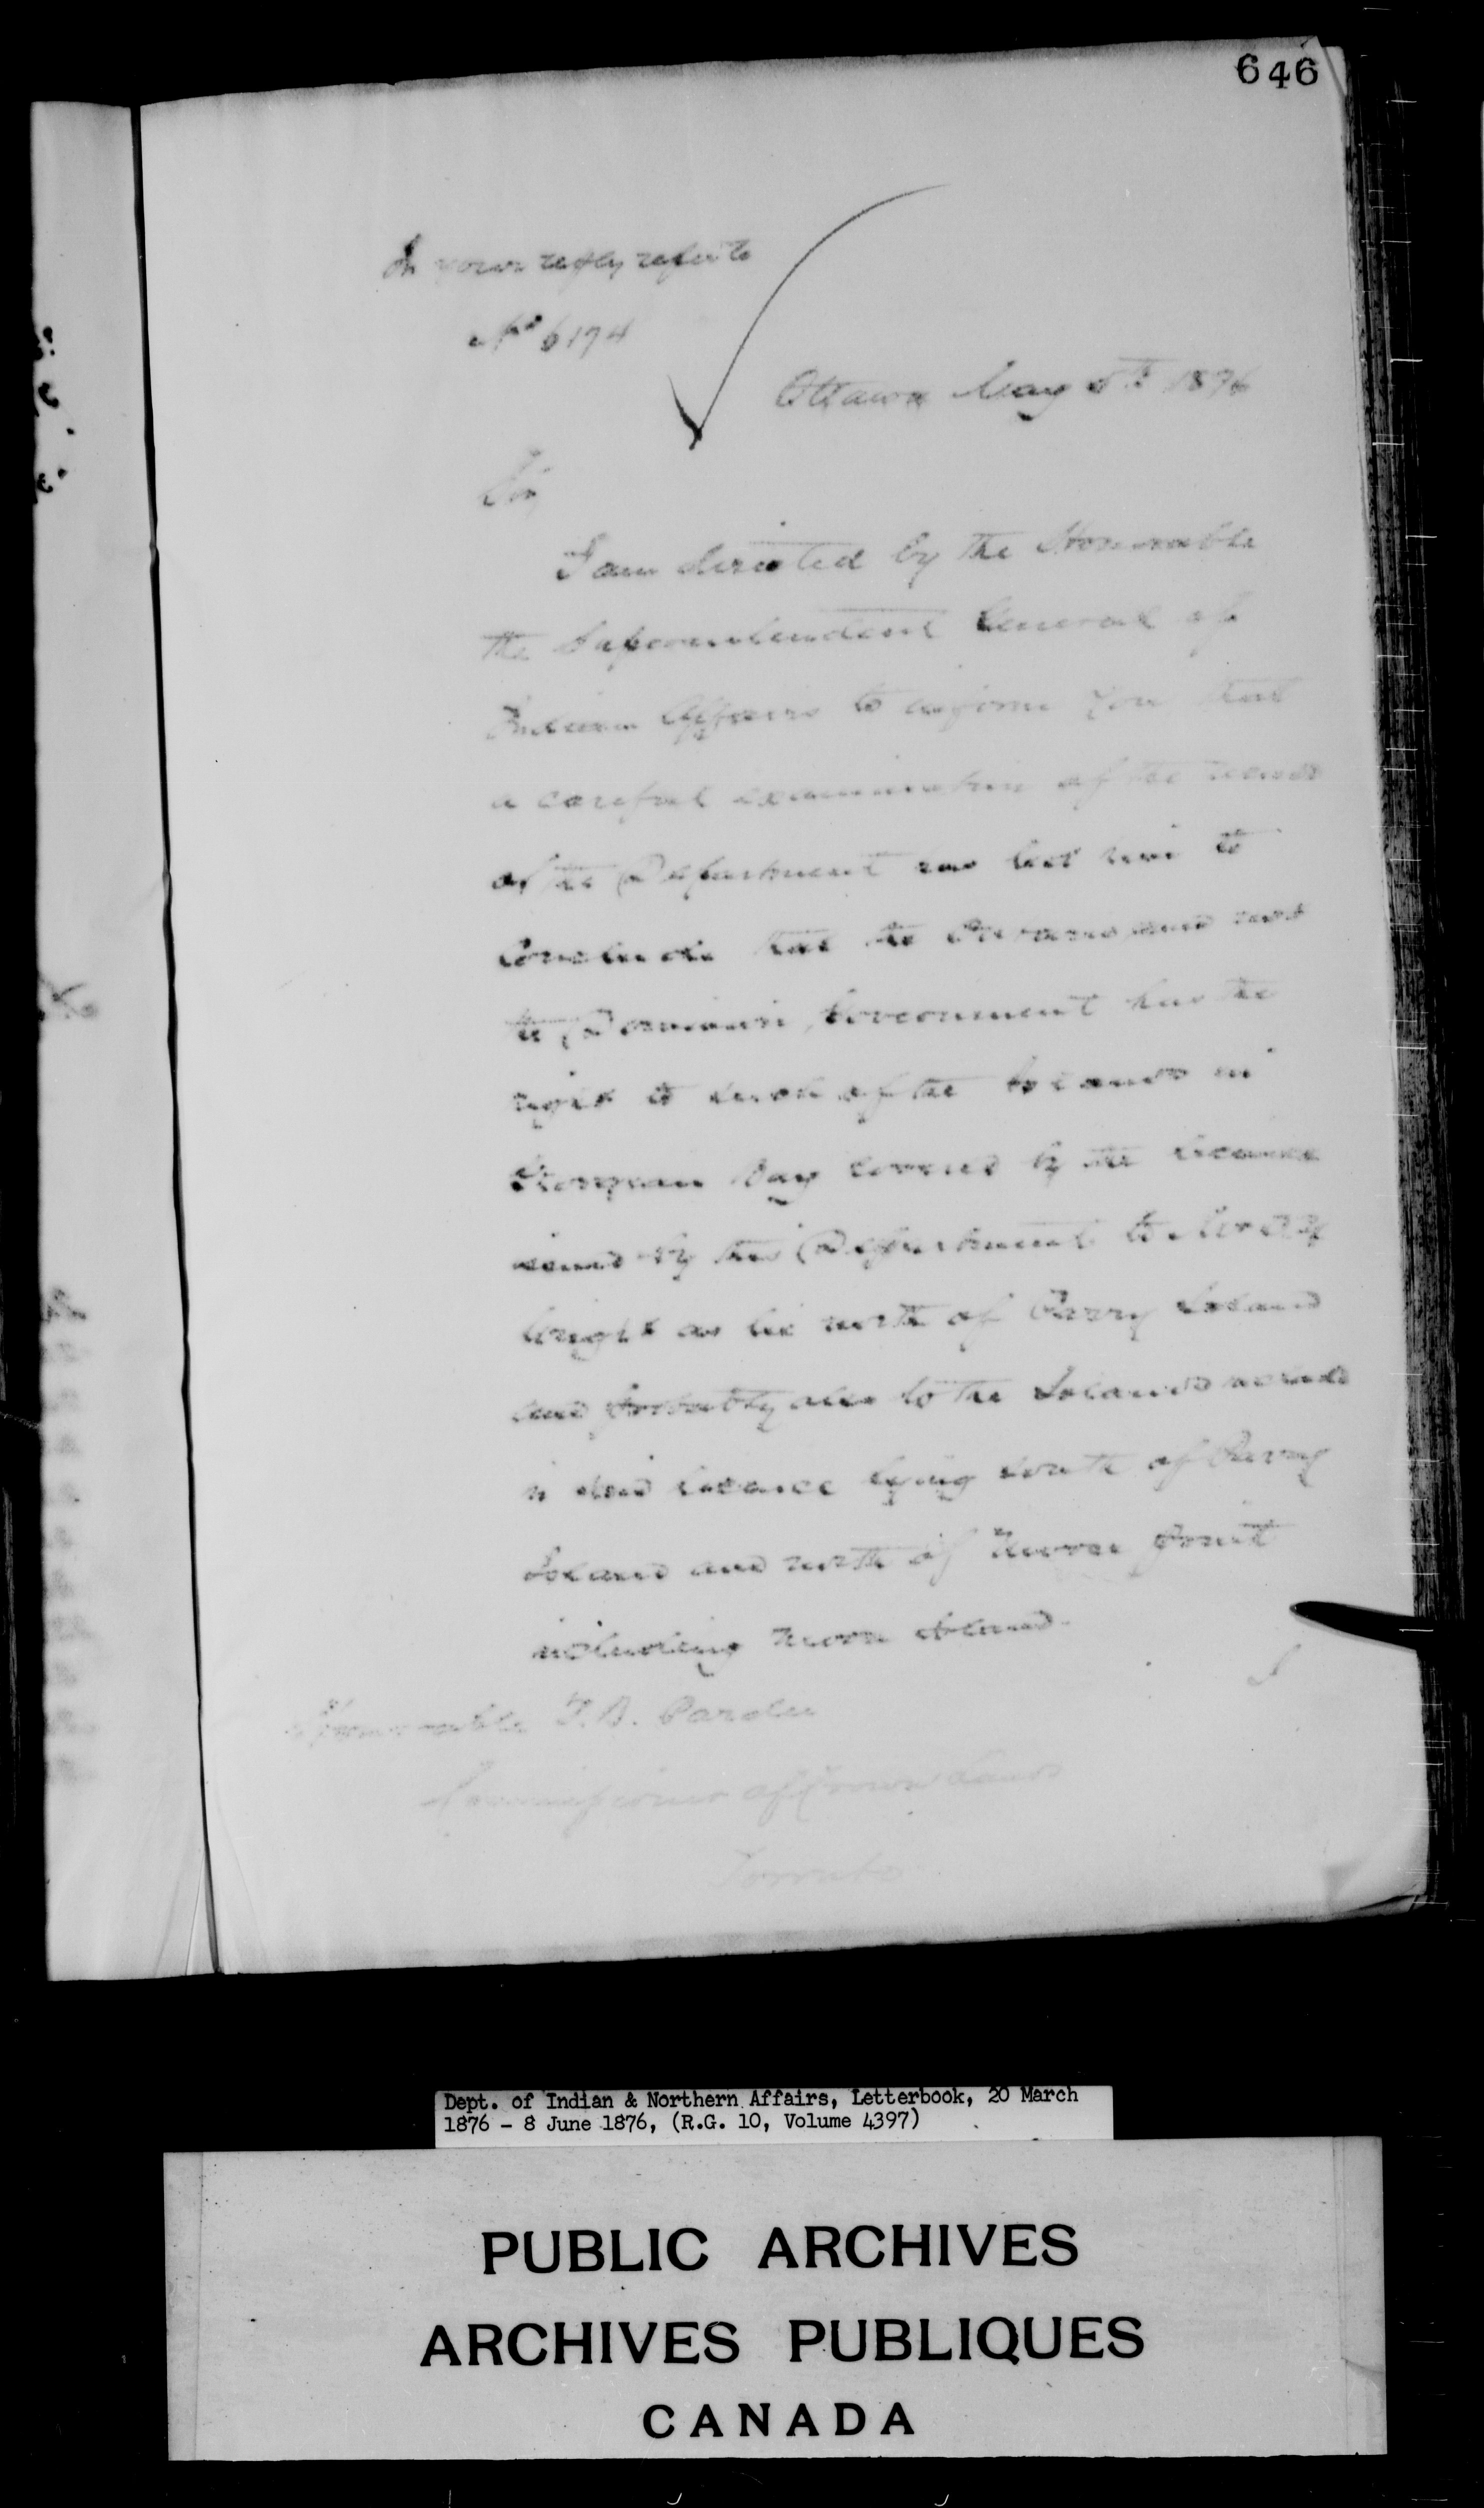 646
In your reply refer to
No 6174
Ottawa May 5th 1876
Sir
I am directed by the Honorable
the Superintendent General of
Indian Affairs to inform you that
a careful examination of the
of the Department has led him to
conclude that the and not
the Dominion Government has the
right to such of the Islands in
Georgian Bay covered by the license
issued by this Department to
as lie north of Parry Island
and probably also to the Islands
in said license lying south of Parry
Island and north of Moose Point
including Moose Island.
Honorable T.B. Pardee
Commissioner of Crown Lands
Toronto
Dept. of Indian & Northern Affairs, Letterbook, 20 March
1876 - 8 June 1876, (R.G. 10, Volume 4397)
PUBLIC ARCHIVES
ARCHIVES PUBLIQUES
CANADA